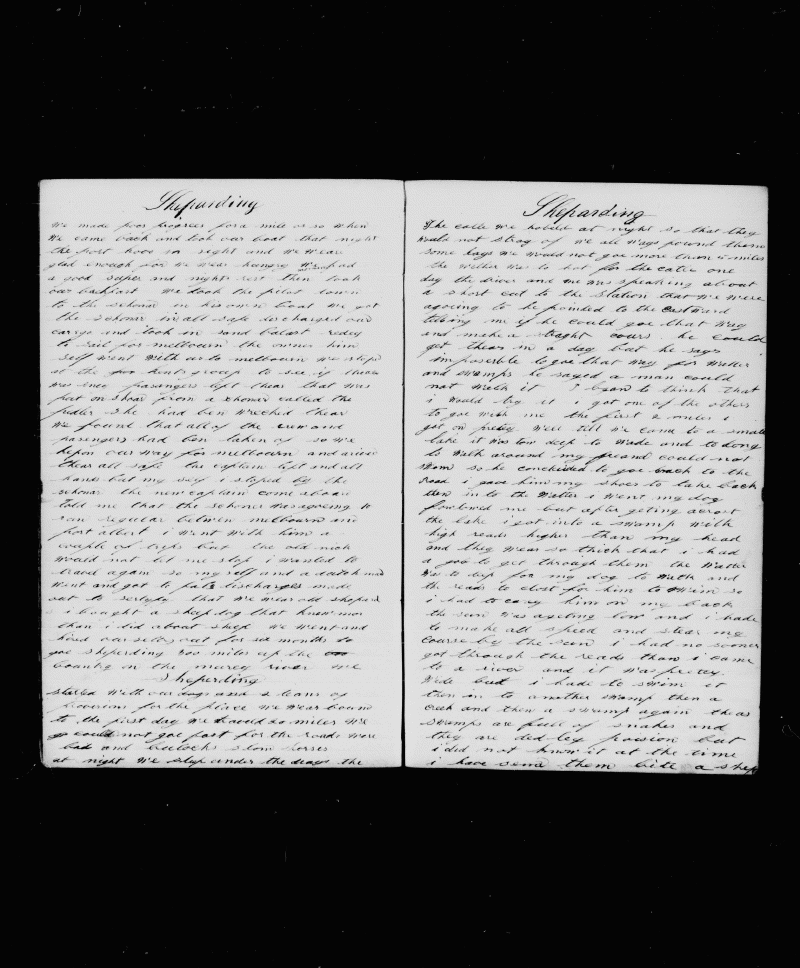 Sheparding
We made poor progres for a mile or so when
We came back and took our boat that night
the port hove in sight and we wear
glad enough for we wear hungre we had
a good super and nights rest then took
our backfast We took the pilot down
to the schonar in his own boat we got
the schonar in all safe discharged our
cargo and took in sand balast redey
to sail for melbourn the owner him
self went with us to melbourn we stopt
at the groop to see if thear
was eney pasengers left thear that was
put on shoar from a schonar called the
she had ben wrecked thear
We found that all of the crew and
pasengers had ben taken of so we
kepon our way for melbourn and arived
thear all safe the captain left and all
hands but my self i stoped by the
schonar the new captain come aboard
told me that the schoner was agoeing to
run regular betwen melbourn and
port albert i went with him a
couple of trips but the old nick
would not let me stop i wanted to
travel again so my self and a dutch man
went and got to fals discharges made
out to sertyfy that we wear old shepards
i bought a shep dog that knew mor
than i did about shep we went and
hired our selves out for six months to
goe sheparding 300 miles up the
country on the murey river we
Sheperding
started with our dogs and 2 teams of
provisions for the place we wear bound
to the first day we made 20 miles We
could not goe fast for the roads were
bad and bulocks slow horses
at night we slep under the drays the
Sheparding
The catle we hobled at night so that they
would not stray of we all ways found them
some days we would not goe more than 5 miles
the wether was to hot for the catle one
day the driver and me was speaking about
a short cut to the station that we were
agoeing to he pointed to the eastward
telling me if he could goe that way
and make a straght cours he could
get thear in a day but he says
imposeble to goe that way for watter
and swamps he sayed a man could
not walk it I began to think that
i would try it i got one of the others
to goe with me the first 2 miles i
got on pretey well till we came to a small
lake it was tow deep to wade and to long
to walk around my freand could not
swim so he concluded to goe back to the
road i gave him my shoes to take back
then in to the watter i went my dog
folowed me but after geting acrost
the lake i got into a swamp with
high reads higher than my head
and they wear so thick that i had
a goo to get through them the watter
was to deep for my dog to walk and
the reads to close for him to swim so
i had to cary him on my back
the sun was aseting low and i hade
to make all speed and stear my
course by the sun i had no sooner
got through the reads than i came
to a river and it was pretey
wide but i hade to swim it
then in to another swamp then a
creek and then a swamp again theas
swamps are full of snakes and
they are dedley poison but
i did not know it at the time
i have senn them bite a shep